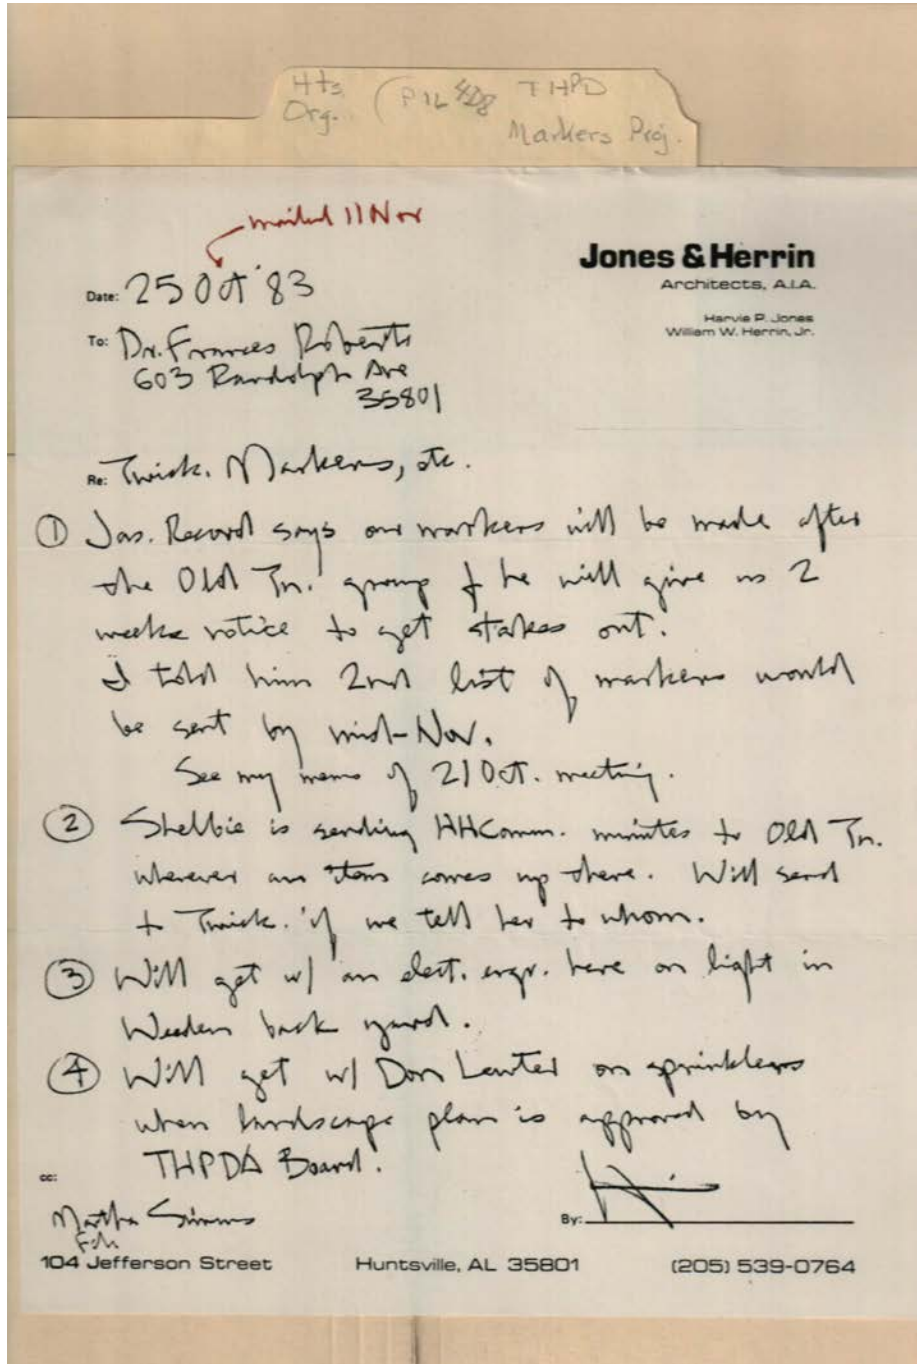 Hts. THPD
Org. (P1L 4D8
Markers Proj.
mailed 11 Nov
Jones & Herrin
Architects, A.I.A.
Harvie P. Jones
William W. Herrin, Jr.
Date: 25 Oct '83
To: Dr. Frances Roberts
603 Randolph Ave
35801
Re: Twick. Markers, etc.
① Jas. Record says our markers will be made after
the Old Tn. group & he will give us 2
weeks notice to get stakes out.
I told him 2nd list of markers would
be sent by mid-Nov.
See my memo of 21 Oct. meeting.
② Shelbie is sending HHComm. minutes to Old Tn.
whenever an item comes up there. Will send
to Twick. if we tell her to whom.
③ Will get w/ an elect. engr. here on light in
Weeden back yard.
④ Will get w/ Don Lawter on sprinklers
when landscape plan is approved by
THPDA Board.
cc:
Martha Simms
File
By:
104 Jefferson Street Huntsville, AL 35801 (205) 539-0764